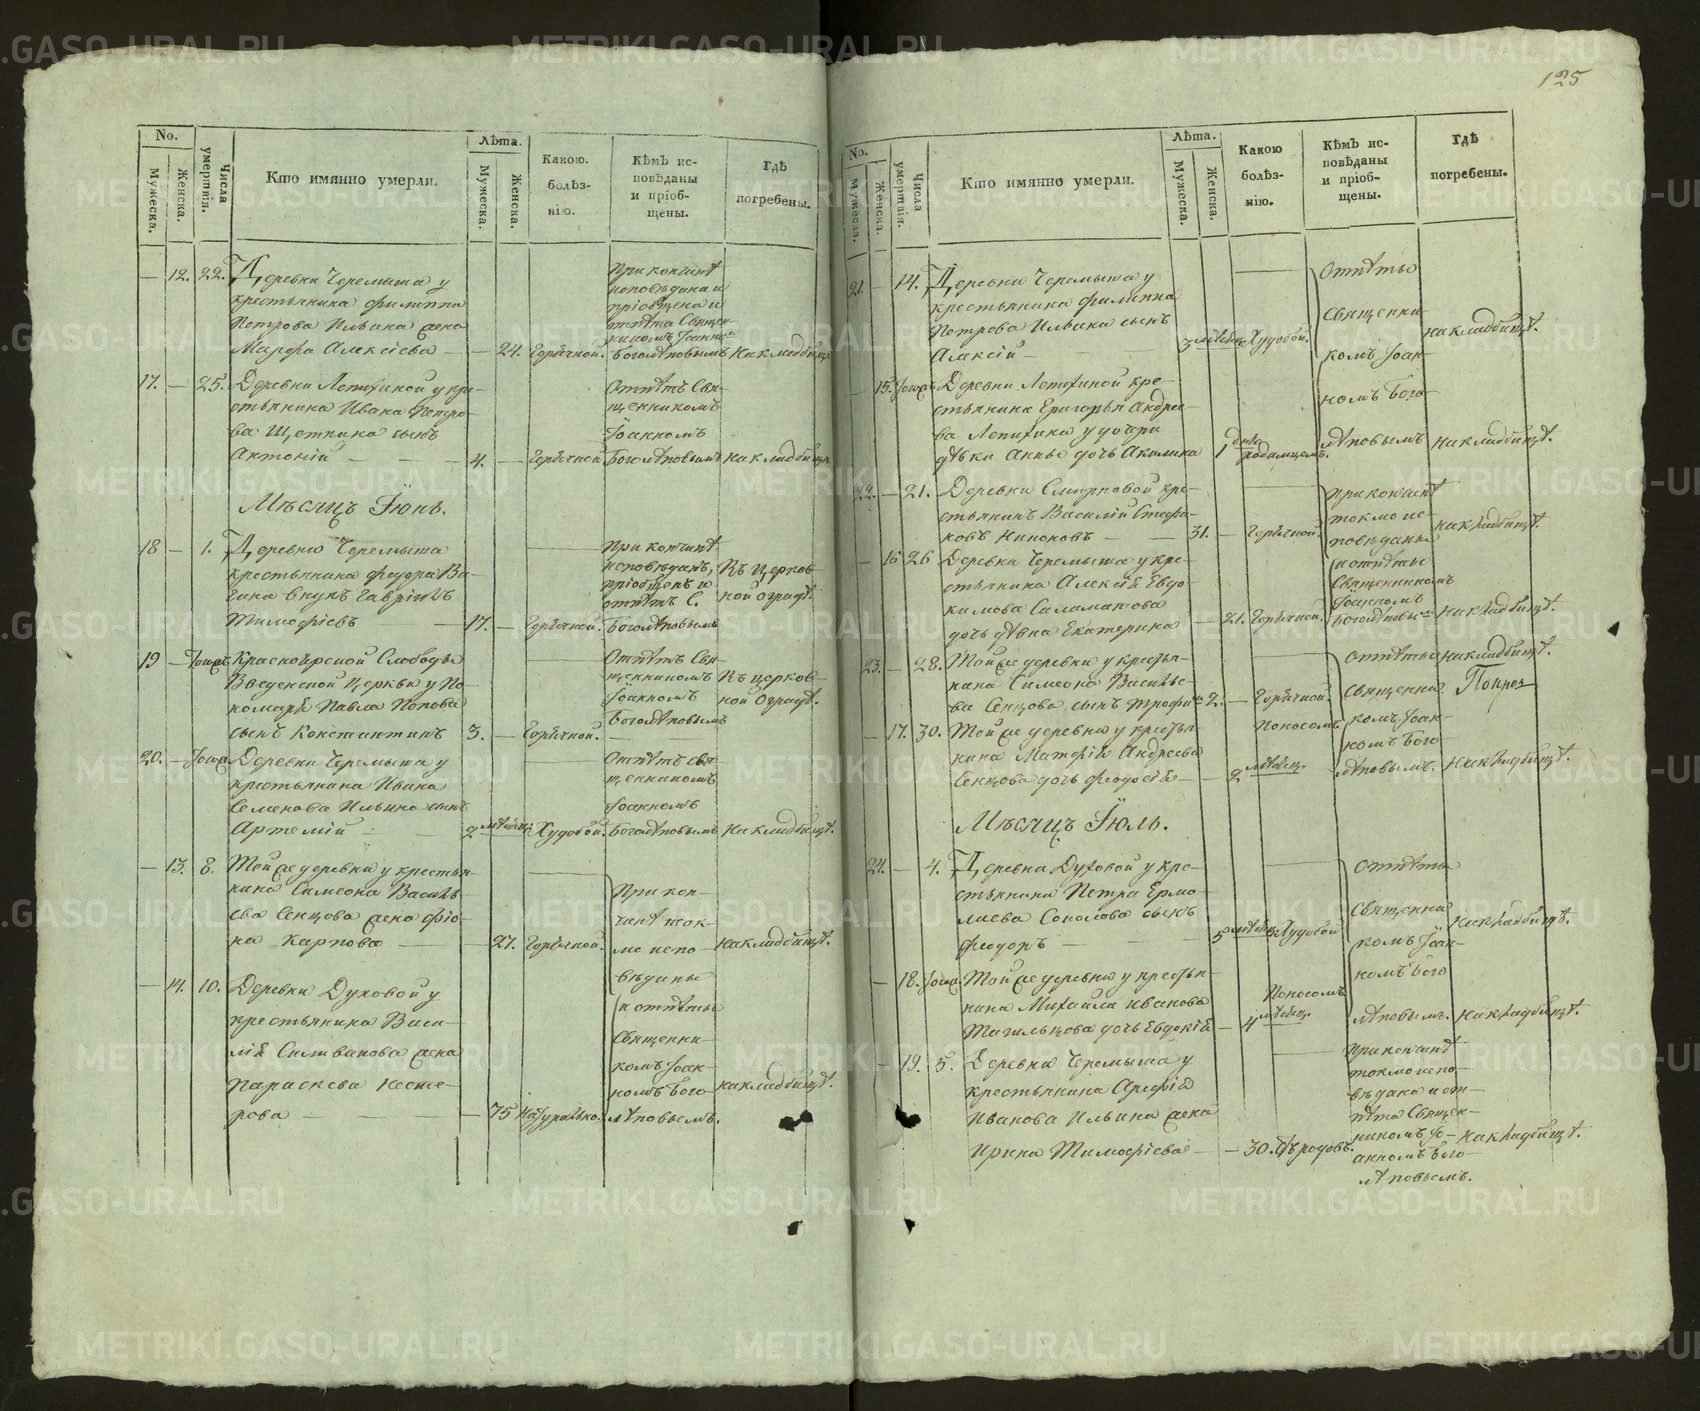 125
No.
Мужеска.
Женска.
Числа умертвія.
Кто имянно умерли.
Лѣта.
Мужеска.
Женска.
Какою. болѣз- нію.
Кѣмъ ис- повѣданы и пріоб- щены.
Гдѣ погребены.
— 12. 22. Деревни Черемыша у
крестьянина Филиппа
Петрова Ильина жена
Марфа Алексіева — — 24. Горячкой.
При кончинѣ
исповѣдана и
пріобщена и
отпѣта Священ-
никомъ Іоанно
Боголѣповымъ
на кладбищѣ
17. — 25. Деревни Лепихиной у кре-
стьянина Ивана Петро-
ва Щеткина сынъ
Антоній — — 4. — Горячкой
Отпѣтъ Свя-
щенникомъ
Іоанномъ
Боголѣповымъ
на кладбищѣ
Мѣсяцъ Іюнь.
18 — 1. Деревни Черемыша
крестьянина Федора Ва-
гина внукъ Гавріилъ
Тимофіевъ — 17. — Горячкой.
При кончинѣ
исповѣданъ,
пріобщенъ и
отпѣтъ С.
Боголѣповымъ
Въ церков-
ной оградѣ.
19 — Тогож Красноярской Слободы
Введенской церкви у По-
номаря Павла Попова
сынъ Константинъ 3. — Горячкой.
Отпѣтъ Свя-
щенникомъ
Іоанномъ
Боголѣповымъ
Въ церков-
ной оградѣ.
20. — Тогож Деревни Черемыша у
крестьянина Ивана
Семенова Ильина сынъ
Артемій — 2 мѣсяц. Худобой.
Отпѣтъ свя-
щенникомъ
Іоанномъ
Боголѣповымъ
на кладбищѣ.
— 13. 8. Той же деревни у крестья-
нина Симеона Василь-
ева Сенцова жена Фіо-
на Карпова — — 27. Горячкой.
При кон-
чинѣ ток-
мо испо-
вѣданы
на кладбищѣ.
— 14. 10. Деревни Духовой у
крестьянина Васи-
лія Силиванова жена
Параскева Несте-
рова — — 75 Натурально.
и отпѣты
Священни-
комъ Іоан-
номъ Бого-
лѣповымъ.
на кладбищѣ.
No.
Мужеска.
Женска.
Числа умертвія.
Кто имянно умерли.
Лѣта.
Мужеска.
Женска.
Какою болѣз- нію.
Кѣмъ ис- повѣданы и пріоб- щены.
Гдѣ погребены.
21. — 14. Деревни Черемыша у
крестьянина Филиппа
Петрова Ильина сынъ
Алексій — 3 мѣсяц. Худобой.
Отпѣты
Священни-
комъ Іоан-
номъ Бого-
лѣповымъ
на кладбищѣ.
— 15. Тогож Деревни Лепихиной кре-
стьянина Григорья Андрее-
ва Лепихина у дочери
дѣвки Анны дочь Акилина 1 дня родимцемъ.
на кладбищѣ.
22. — 21. Деревни Смирновой кре-
стьянинъ Василій Стефа-
новъ Никоновъ — 31. — Горячкой.
При кончинѣ
токмо ис-
повѣданы
на кладбищѣ.
— 16 26 Деревни Черемыша у кре-
стьянина Алексія Евдо-
кимова Саламатова
дочь дѣвка Екатерина — 21. Горячкой.
и отпѣты
Священникомъ
Іоанномъ
Боголѣповы
на кладбищѣ.
23. — 28. Той же деревни у крестья-
нина Симеона Василье-
ва Сенцова сынъ Трофим 2. — Горячкой.
Отпѣты
Священни-
комъ Іоан-
номъ Бого-
лѣповымъ.
на кладбищѣ.
— 17. 30. Той же деревни у крестья-
нина Матфія Андреева
Сенцова дочь Феодосія — 2 мѣсяц. Поносомъ
на кладбищѣ.
Мѣсяцъ Іюль.
24. — 4. Деревни Духовой у кре-
стьянина Петра Ермо-
лаева Соколова сынъ
Феодоръ — 5 мѣсяц. Худобой
Отпѣты
Священни-
комъ Іоан-
номъ Бого
лѣповымъ.
на кладбищѣ.
— 18. Тогож Той же деревни у крестья-
нина Михаила Иванова
Тагильцова дочь Евдокія — 4 мѣсяц. Поносомъ
на кладбищѣ.
— 19. 5. Деревни Черемыша у
крестьянина Арефія
Иванова Ильина жена
Ирина Тимофіева — — 30. Съ родовъ.
При кончинѣ
токмо испо-
вѣдана и от-
пѣта Священ-
никомъ Іо-
анномъ Бого-
лѣповымъ.
на кладбищѣ.
METRIKI.GASO-URAL.RU